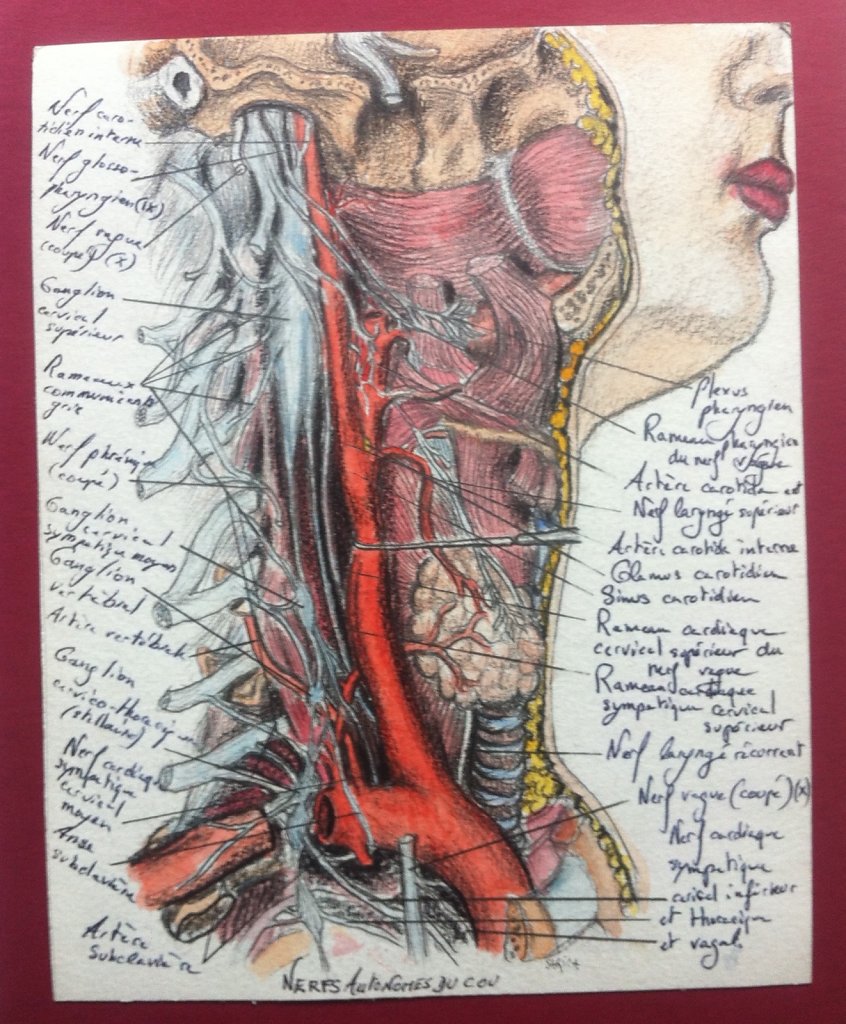 Nerf caro-
tidien interne
Nerf glosso-
pharyngien (IX)
Nerf vague
(coupé) (X)
Ganglion
cervical
supérieur
Rameaux
communicants
gris
Nerf phrénique
(coupé)
Ganglion
cervical
sympatique moyen
Ganglion
vertébral
Artère vertébrale
Ganglion
cervico-thoracique
(stellaire)
Nerf cardiaque
sympatique
cervical
moyen
Anse
subclavière
Artère
subclavière
Plexus
pharyngien
Rameau pharyngien
du nerf vague
Artère carotide ext
Nerf laryngé supérieur
Artère carotide interne
Glomus carotidien
Sinus carotidien
Rameau cardiaque
cervical supérieur du
nerf vague
Rameau cardiaque
sympatique cervical
supérieur
Nerf laryngé récurrent
Nerf vague (coupé) (X)
Nerf cardiaque
sympatique
cervical inférieur
et thoracique
et vagal
NERFS AUTONOMES DU COU